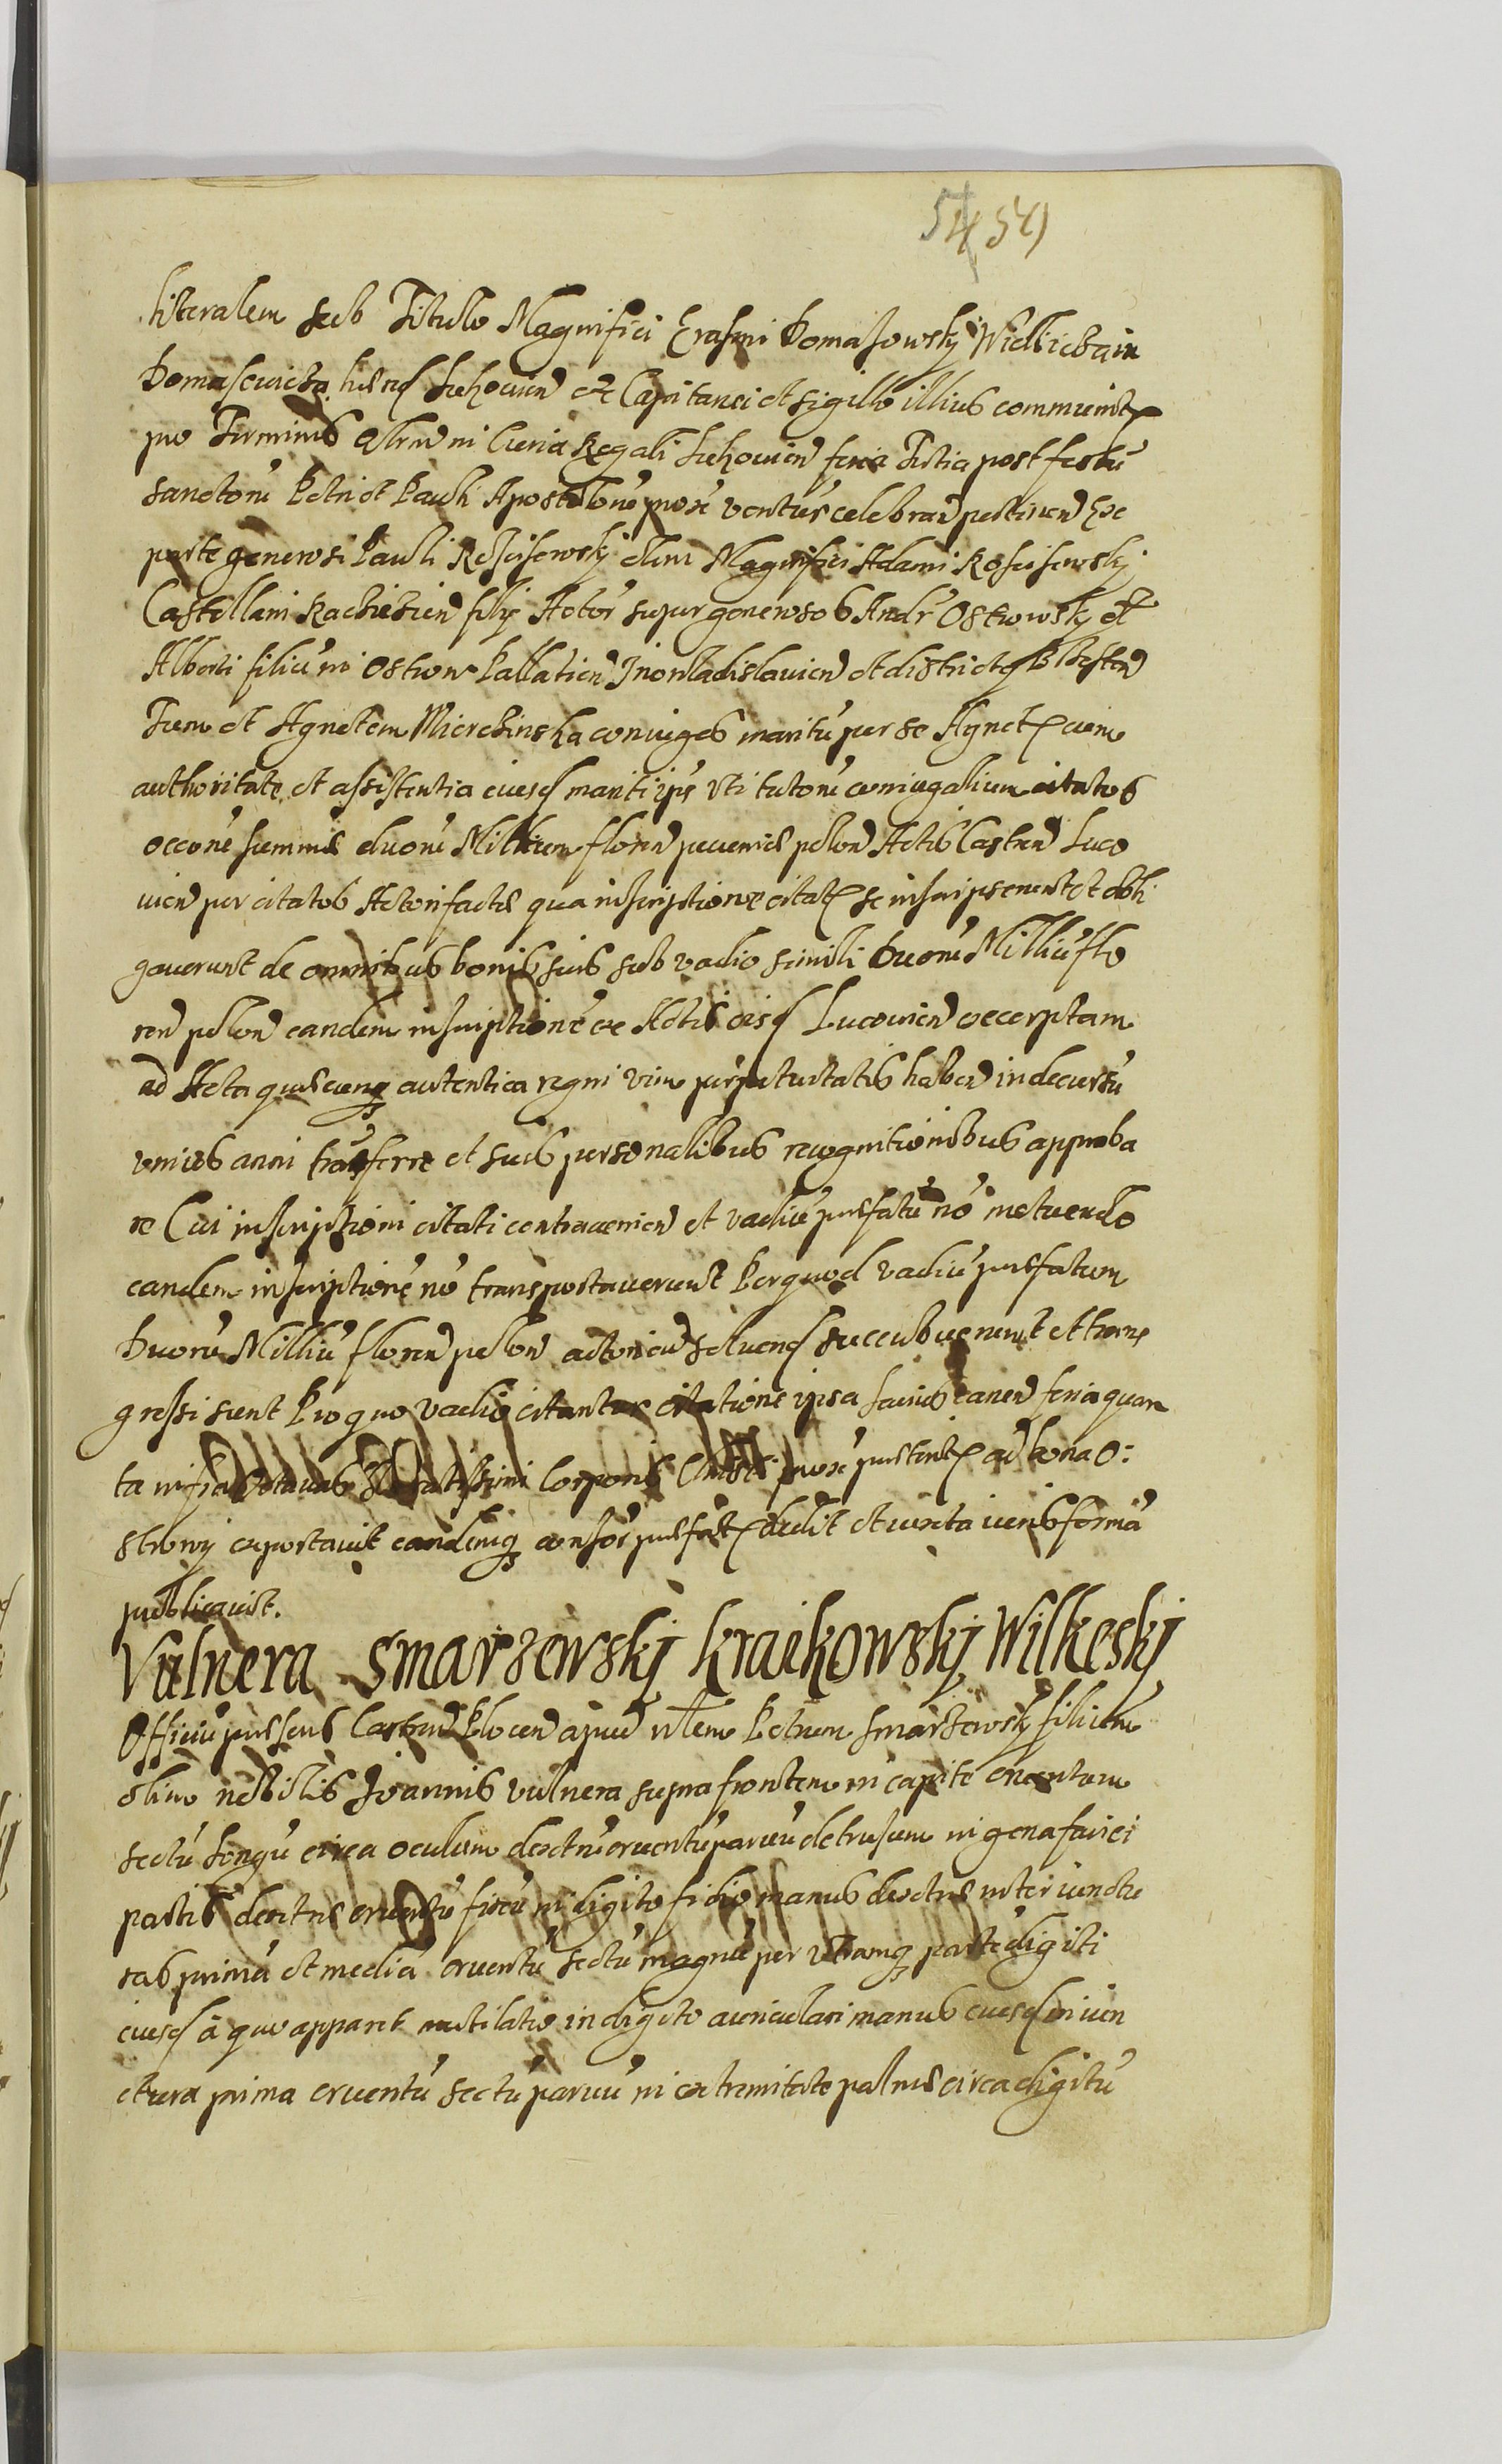 54 54)
literalem sub Titulo Magnifici Erasmi Domasowskÿ Wielliczka in
Domasewicza et Capitanei et sigillo illius communit
pro Terminis in Curia Regali feria Tertia post festū
sanctorū Petri et Pauli Apostolorū proxe ventur̃ celebran pertinen Ex
parte generosi Pauli Rosciſewskÿ olim Magnifici Adami Rosciſewskÿ
Castellani Raciazien filÿ Actor̃ super generosos Andr̃ Ostrowskÿ et
Alberti filiū in Ostrow Pallatien Inowladislavien et districtq Brzesten
Tum et Agnetem Mierczinska coniuges maritū per se Agnet cum
authoritate et assistentia eiusd mariti ips̃ uti tutoris coniugalium citatos
occone summae duorū Millium floren pecuniae polon Actis Castren Luco
vien per citatos Actori factae qua inscriptione citati se inscripserunt et obli
gaverunt de omnibus bonis suis sub vadio simili Duorū Milliū flo
ren polon eandem inscriptionē ex Actis eisd Lucovien excerptam
ad Acta quaecunq autentica regni vim perpetuitatis haben in decursu
unius anni trāsferre et suis personalibus recognitionibus approba
re Cui inscriptioni citati contravenien et vadiū praefatū nō metuendo
eandem inscriptionē nō transportaverunt Perquod vadiū praefatum
Duorū Milliū floren polon actori solvend succubuerunt et trans
gressi sunt Pro quo vadio citantur citatione ipsa feria quar
ta infra Octavas Sacratissimi Corporis Christi proxe praeterit ad bona O:
strowÿ exportavit eandemq praefat dedit et iuxta iuris formā
publicavit.
Vulnera Smarzewskj Kraikowskj Wilkeskj
Officiū praesens Castren Plocen apud Petrum Smarzewskÿ filium
olim nobilis Joannis vulnera supra frontem in capite cruentum
sectū longū circa oculum dextrū cruentū parvū detrusum in gena faciei
partis dextrae cruentū fixū in digito manus dextrae inter iunctu
ras primā et mediā cruentū sectū magnū per utramq partē digiti
eiusd à quo apparet mutilatio in digito auriculari manus eiusd in iun
ctura prima cruentū sectū parvū in extremitate palmae circa digitū